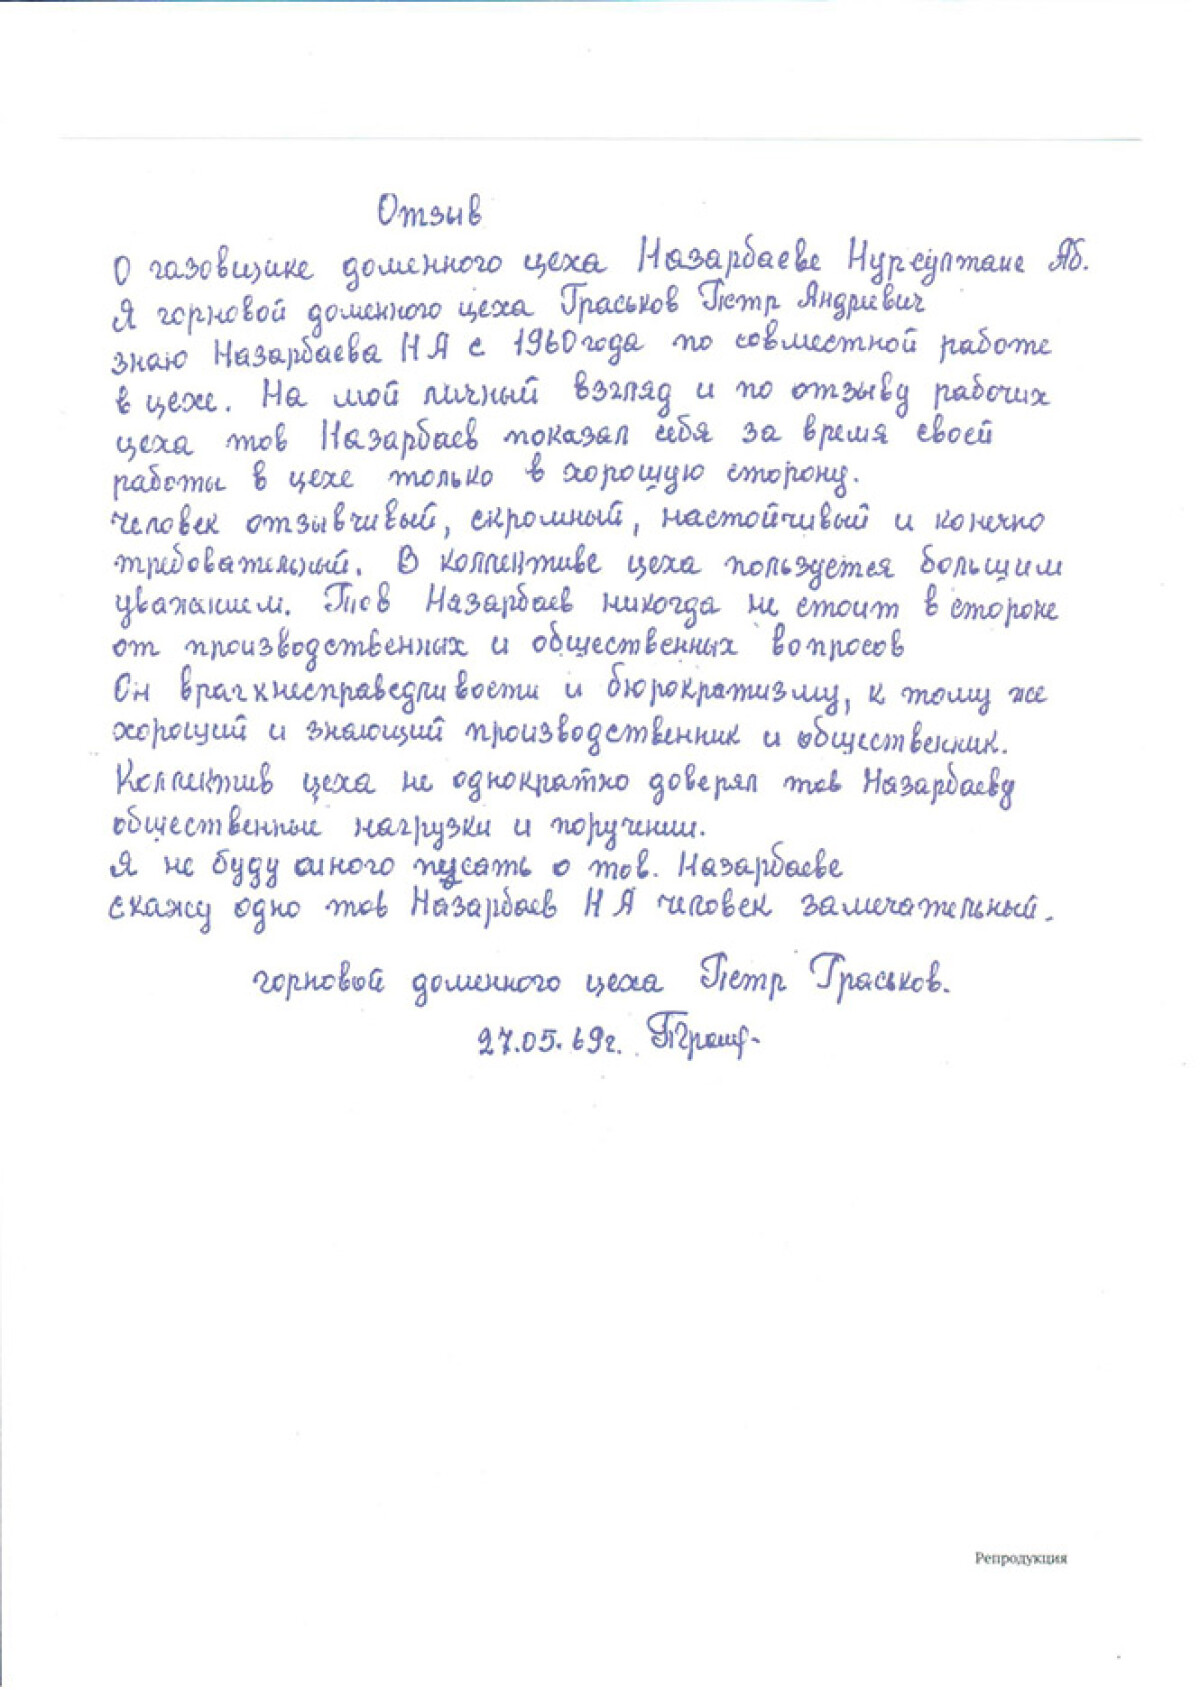 Отзыв
О газовщике доменного цеха Назарбаеве Нурсултане Аб.
Я горновой доменного цеха Граськов Петр Яндриевич
знаю Назарбаева Н Я с 1960 года по совместной работе
в цехе. На мой личный взгляд и по отзыву рабочих
цеха тов Назарбаев показал себя за время своей
работы в цехе только в хорошую сторону.
Человек отзывчивый, скромный, настойчивый и конечно
требовательный. В коллективе цеха пользуется большим
уважанием. Тов Назарбаев никогда не стоит в стороне
от производственных и общественных вопросов
Он враг кнесправедливости и бюрократизму, к тому же
хороший и знающий производственник и общественник.
Коллектив цеха не однократно доверял тов Назарбаеву
общественные нагрузки и поручении.
Я не буду много писать о тов. Назарбаеве
скажу одно тов Назарбаев Н Я человек замечательный.
горновой доменного цеха Петр Граськов.
27.05.69г.
Репродукция